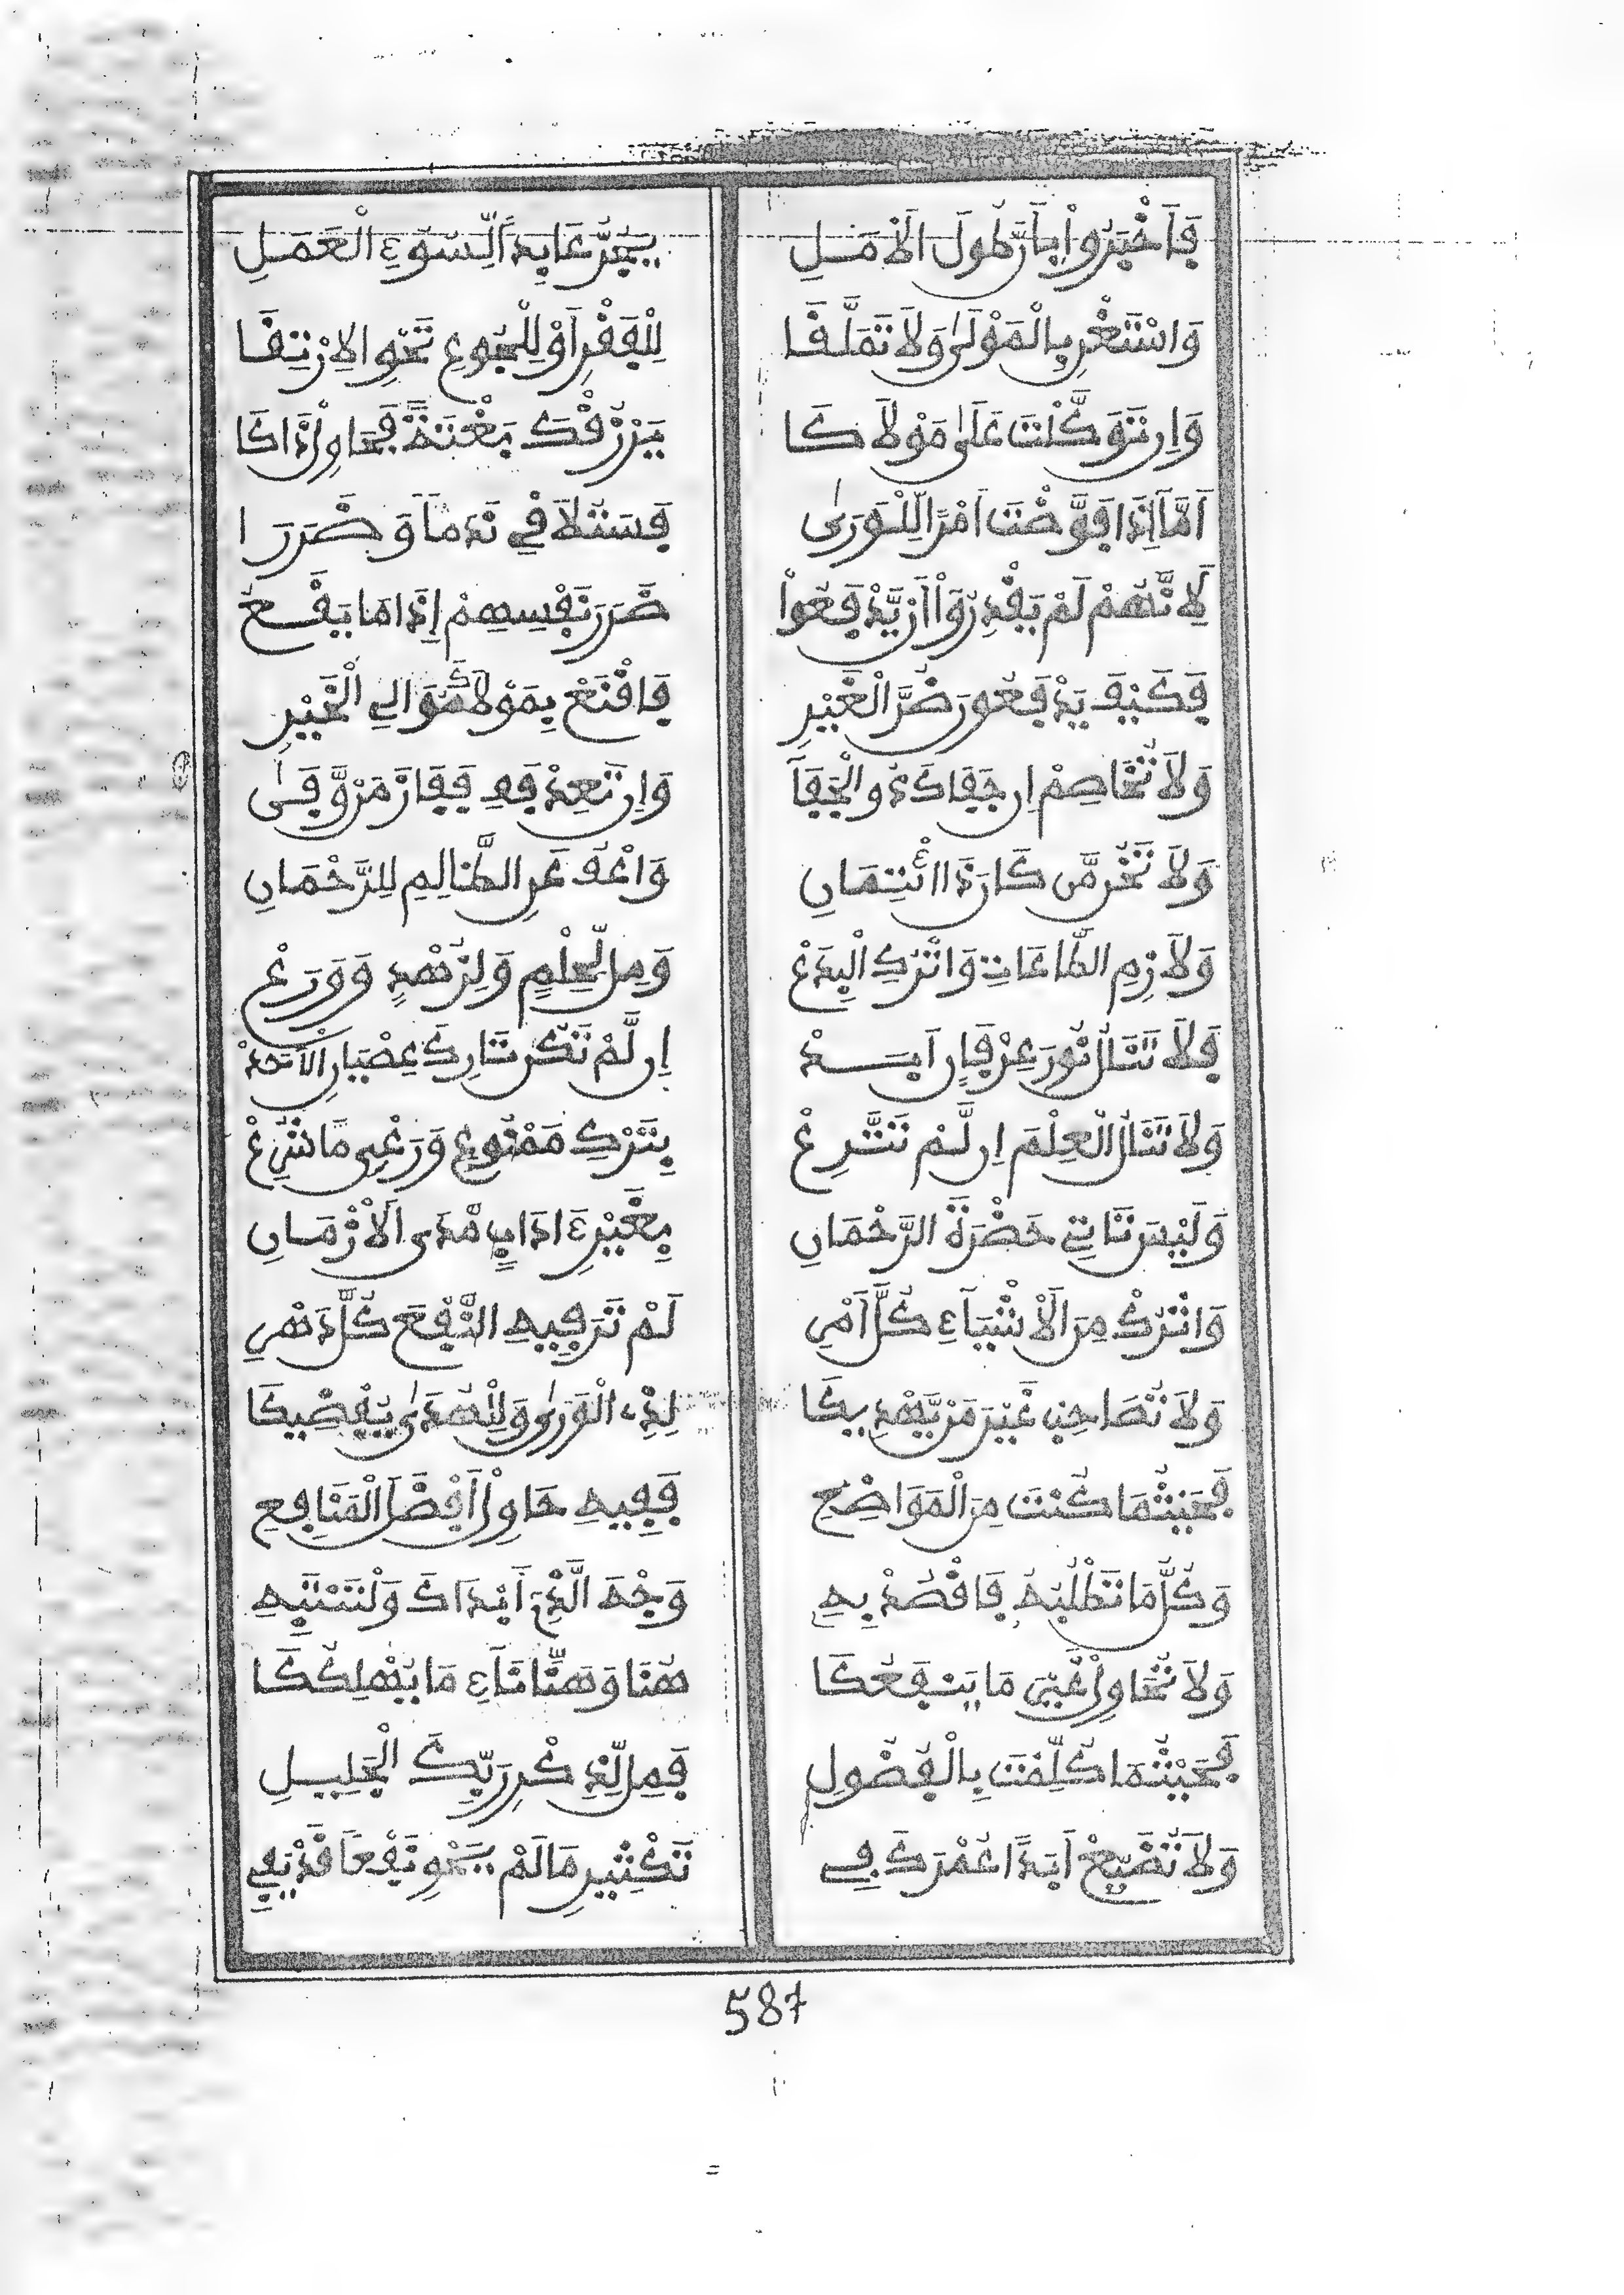 فَأَخْبَرُواْ بِأَنَّ طُولَ الْأَمَلِ يَجُرُّ عَابِداً لِسُوءِ الْعَمَلِ
وَاسْتَغْنِ بِالْمَوْلَى وَلاَ تَمَلَّقَا لِلْفَقْرِ أَوْ لِلْجُوعِ تَحْوِ الاِرْتِقَا
وَإِن تَوَكَّلْتَ عَلَى مَوْلاَكَا يَرْزُقْكَ بَغْتَةً فَحَاوِلْ ذَاكَا
أَمَّا إِذَا فَوَّضْتَ أَمْراً لِلْوَرَى فَسَتُلاَقِي نَدَماً وَضَرَرَا
لِأَنَّهُمْ لَمْ يَقْدِرُواْ أَن يَدْفَعُواْ ضَرَرَ نَفْسِهِمْ إِذَا مَا يَقَعُ
فَكَيْفَ يَدْفَعُونَ ضُرَّ الْغَيْرِ فَاقْنَعْ بِمَوْلاَكَ مُوَالِي الْخَيْرِ
وَلاَ تُخَاصِمْ إِن جَفَاكَ ذُو الْجَفَآ وَإِن تَعِدْ فَفِ فَفَازَ مَن وَّفَى
وَلاَ تَخُن مَّن كَانَ ذَا ائْتِمَانِ وَاعْفُ عَنِ الظَّالِمِ لِلرَّحْمَانِ
وَلاَزِمِ الطَّاعَاتِ وَاتْرُكِ الْبِدَعْ وَمِل لِّحِلْمٍ وَلِزُهْدٍ وَوَرَعْ
فَلاَ تَنَالُ نُورَ عِرْفَانٍ أَبَدْ إِن لَّمْ تَكُن تَارِكَ عِصْيَانِ الْأَحَدْ
وَلاَ تَنَالُ الْعِلْمَ إِن لَّمْ تَتَّرِعْ بِتَرْكِ مَمْنُوعٍ وَرَعْيِ مَا شُرِعْ
وَلَيْسَ تَاتِي حَضْرَةَ الرَّحْمَانِ بِغَيْرِ ءَادَابٍ مَّدَى الْأَزْمَانِ
وَاتْرُكْ مِنَ الْأَشْيَاءِ كُلَّ أَمْرِ لَمْ تَرَ فِيهِ النَّفْعَ كُلَّ دَهْرِ
وَلاَ تُصَاحِبْ غَيْرَ مَن يَّهْدِيكَا لِذِي الْوَرَى وَلِلْهُدَى يُفْضِيكَا
فَحَيْثُمَا كُنْتَ مِنَ الْمَوَاضِعِ فَفِيهِ حَاوِلْ أَفْضَلَ الْمَنَافِعِ
وَكُلَّمَا تَطْلُبُهُ فَاقْصُدْ بِهِ وَجْهَ الَّذِي أَبْدَاكَ وَلْتَنْتَبِهِ
وَلاَ تُحَاوِلْ غَيْرَ مَا يَنْفَعُكَا هُنَا وَهَنَّا نَاءِ مَا يُهْلِكُكَا
فَحَيْثُمَا كُلِّفْتَ بِالْفُضُولِ فَمِل لِّذِكْرِ رَبِّكَ الْجَلِيلِ
وَلاَ تُضَيِّعْ أَبَداً عُمْرَكَ فِي تَكْثِيرِ مَا لَمْ يَحْوِ نَفْعاً قَدْ يَفِي
587